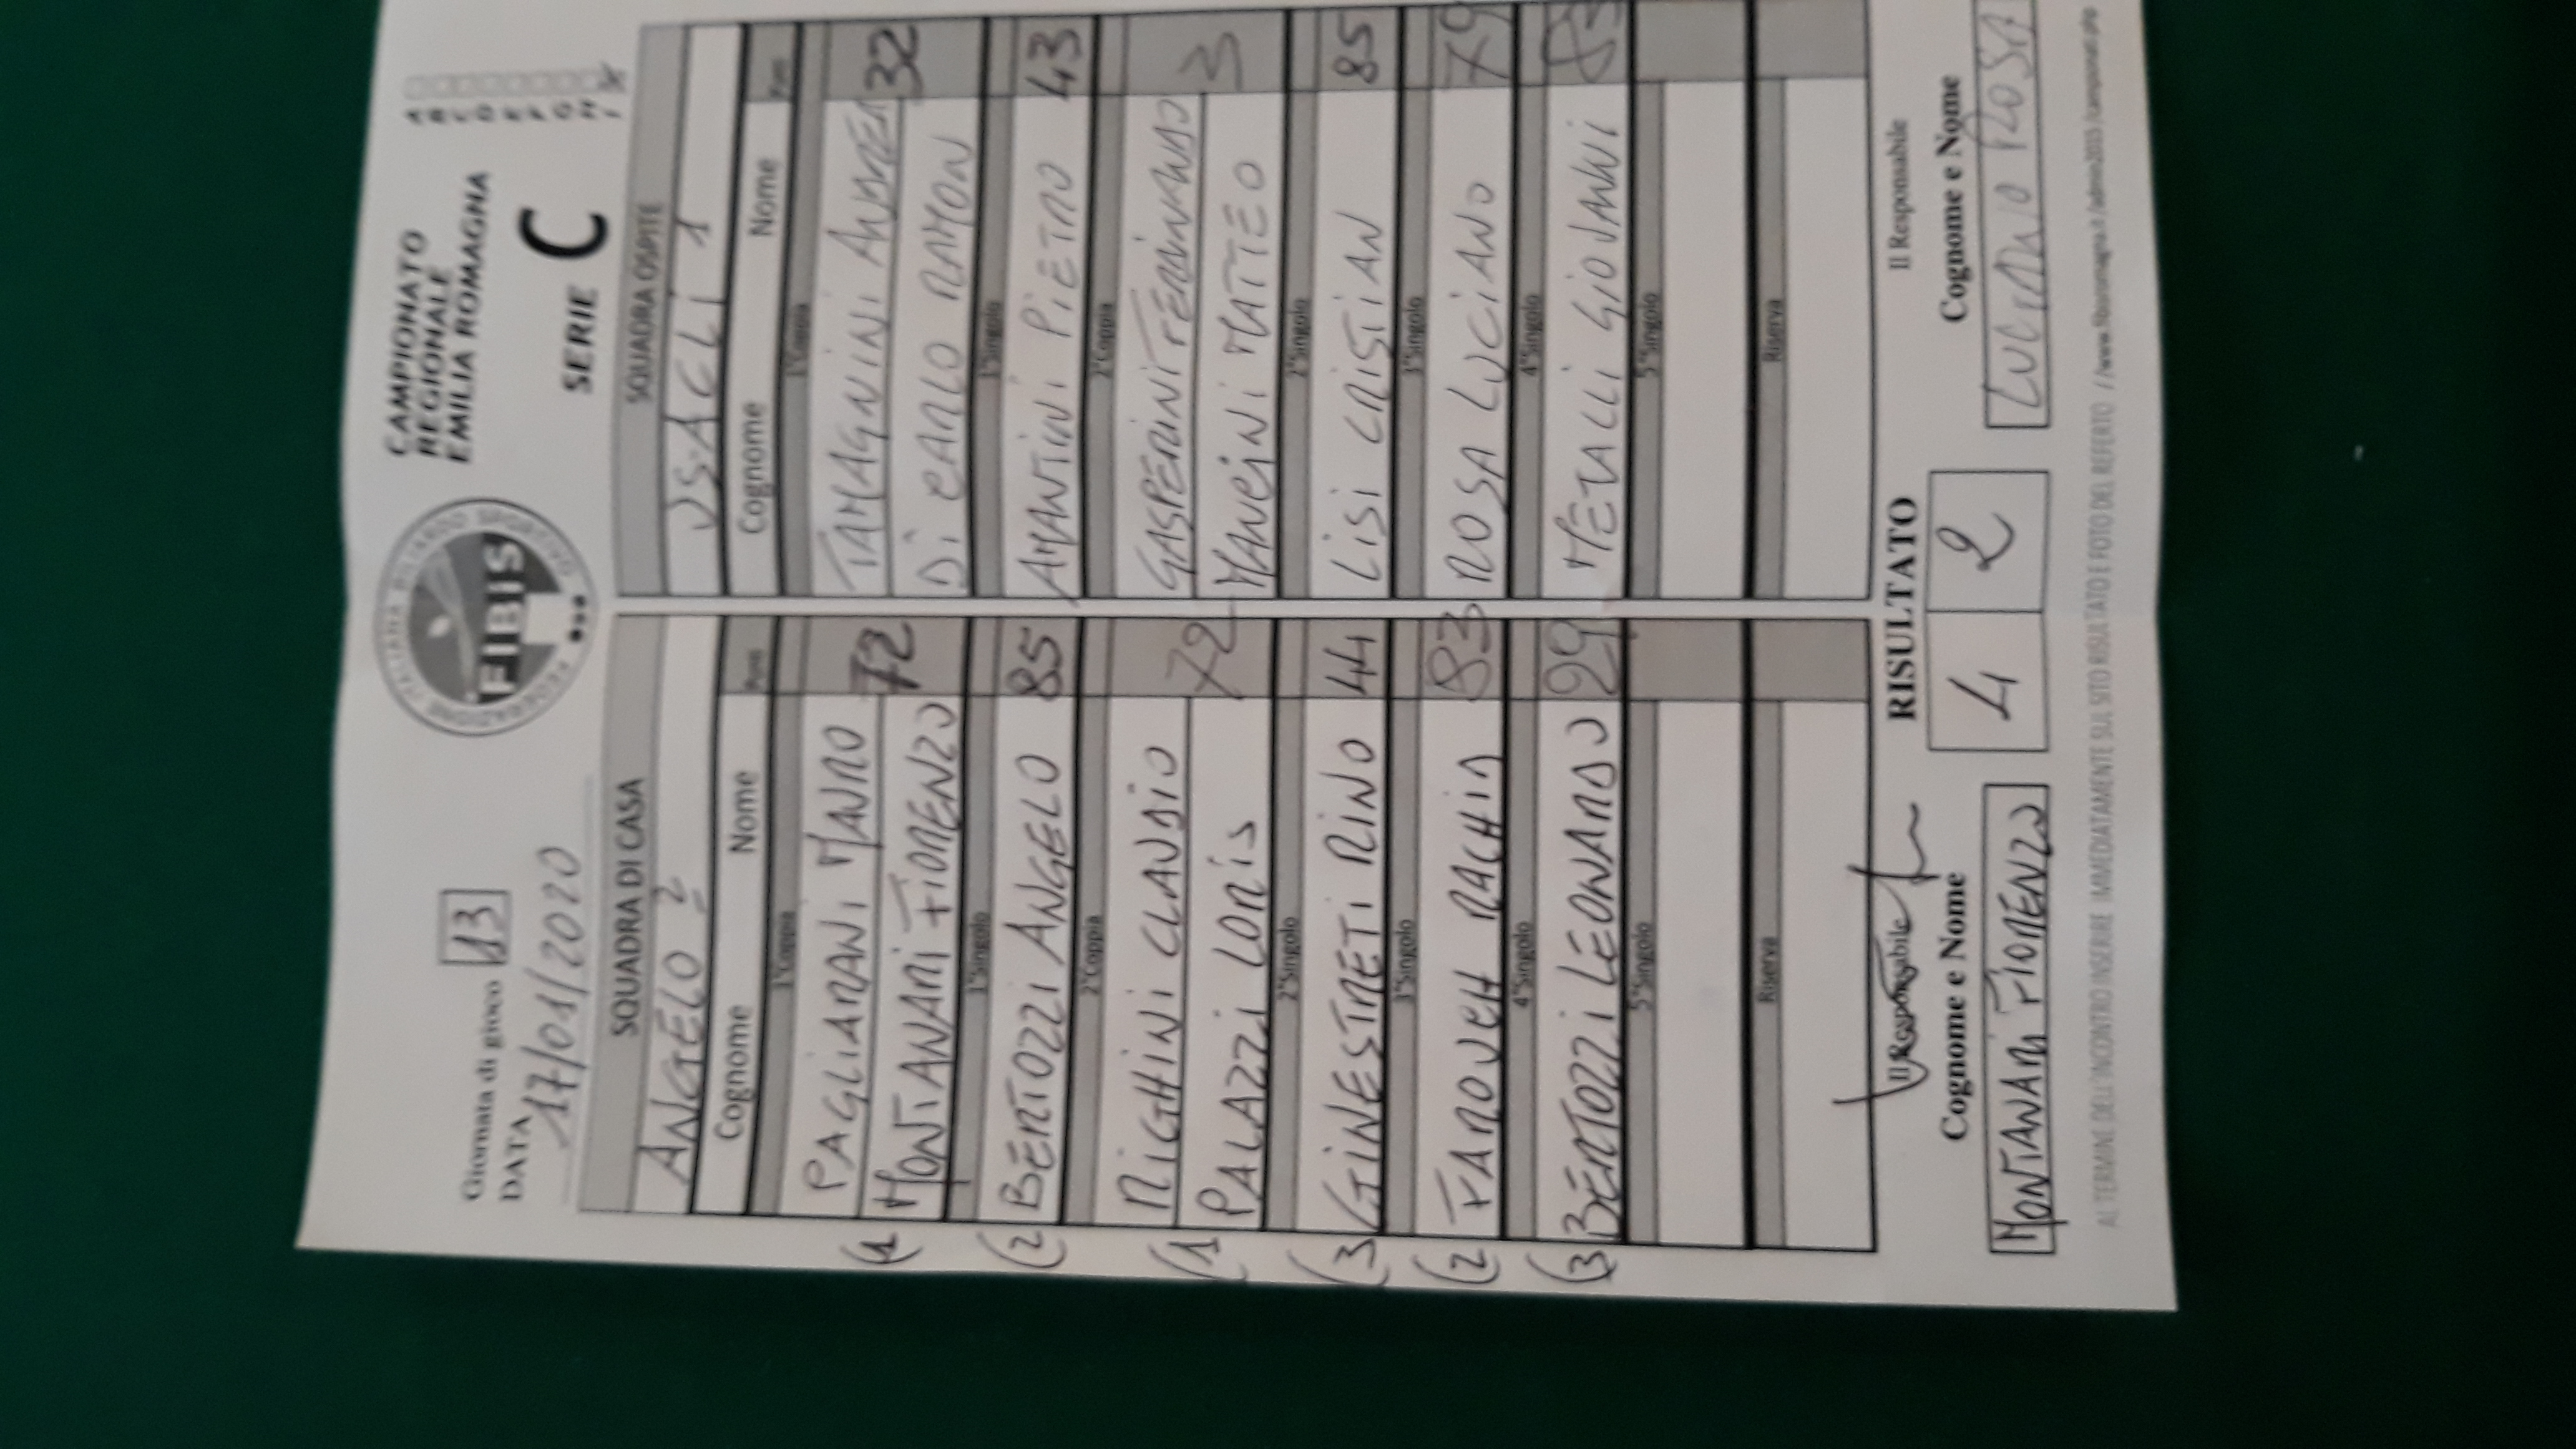 Giornata di gioco 13
DATA 17/01/2020
FEDERAZIONE ITALIANA BILIARDO SPORTIVO
FIBIS
CAMPIONATO
REGIONALE
EMILIA ROMAGNA
SERIE C
SQUADRA DI CASA SQUADRA OSPITE
ANGELO 2 USACLI 1
Cognome Nome Punti Cognome Nome Punti
1°Coppia 1°Coppia
PAGLIARANI MAURO TAMAGNINI ANDREA
(1 72 32
MONTANARI FIORENZO DI CARLO RAMON
1°Singolo 1°Singolo
(2 BERTOZZI ANGELO 85 AMANTINI PIETRO 43
2°Coppia 2°Coppia
RIGHINI CLAUDIO GASPERINI FERDINANDO
(1 72 3
PALAZZI LORIS MANCINI MATTEO
2°Singolo 2°Singolo
(3 GINESTRETI RINO 44 LISI CRISTIAN 85
3°Singolo 3°Singolo
(2 FAROUCH RACHID 83 ROSA LUCIANO 79
4°Singolo 4°Singolo
(3 BERTOZZI LEONARDO 29 MEVALI GIOVANNI 85
5°Singolo 5°Singolo
Riserva Riserva
Il Responsabile RISULTATO Il Responsabile
Cognome e Nome 4 2 Cognome e Nome
MONTANARI FIORENZO LUCIANO ROSA
AL TERMINE DELL'INCONTRO INSERIRE IMMEDIATAMENTE SUL SITO RISULTATO E FOTO DEL REFERTO